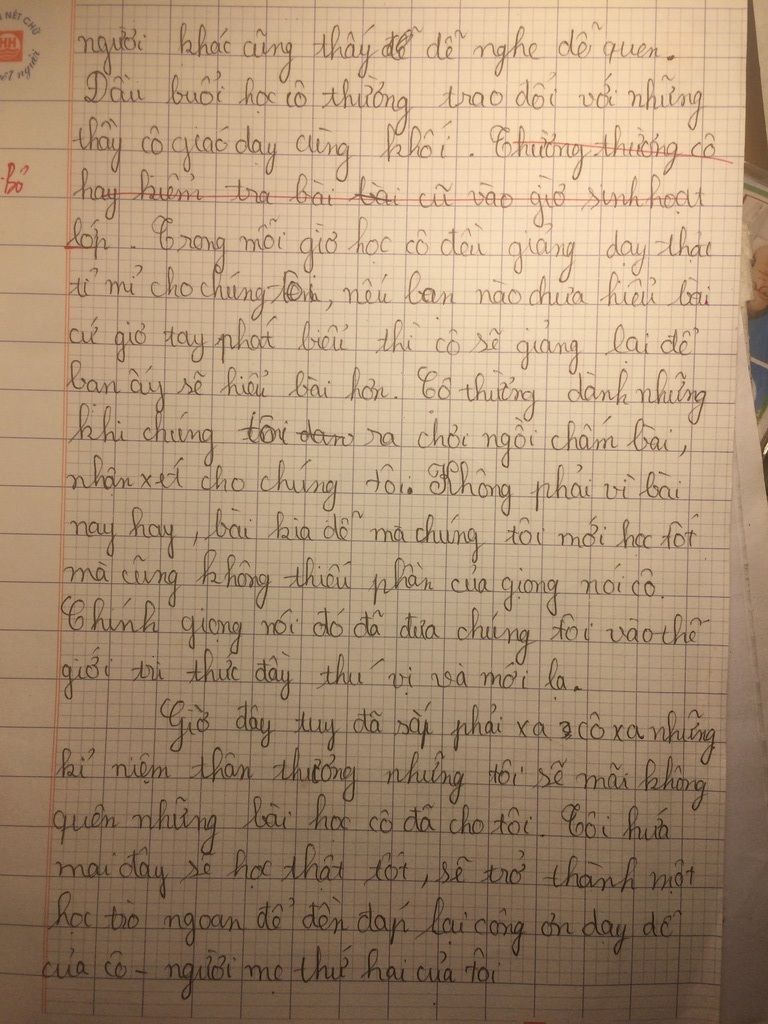 NÉT CHỮ
NẾT NGƯỜI
người khác cũng thấy để dễ nghe dễ quen.
Đầu buổi học cô thường trao đổi với những
thầy cô giáo dạy cùng khối. Thường thường cô
bỏ
hay kiểm tra bài bài cũ vào giờ sinh hoạt
lớp. Trong mỗi giờ học cô đều giảng dạy thật
tỉ mỉ cho chúng tôi, nếu bạn nào chưa hiểu bài
cứ giơ tay phát biểu thì cô sẽ giảng lại để
bạn ấy sẽ hiểu bài hơn. Cô thường dành những
khi chúng tôi đang ra chơi ngồi chấm bài,
nhận xét cho chúng tôi. Không phải vì bài
này hay, bài kia dễ mà chúng tôi mới học tốt
mà cũng không thiếu phần của giọng nói cô.
Chính giọng nói đó đã đưa chúng tôi vào thế
giới tri thức đầy thú vị và mới lạ.
Giờ đây tuy đã sắp phải xa cô xa những
kỉ niệm thân thương nhưng tôi sẽ mãi không
quên những bài học cô đã cho tôi. Tôi hứa
mai đây sẽ học thật tốt, sẽ trở thành một
học trò ngoan để đền đáp lại công ơn dạy dỗ
của cô - người mẹ thứ hai của tôi